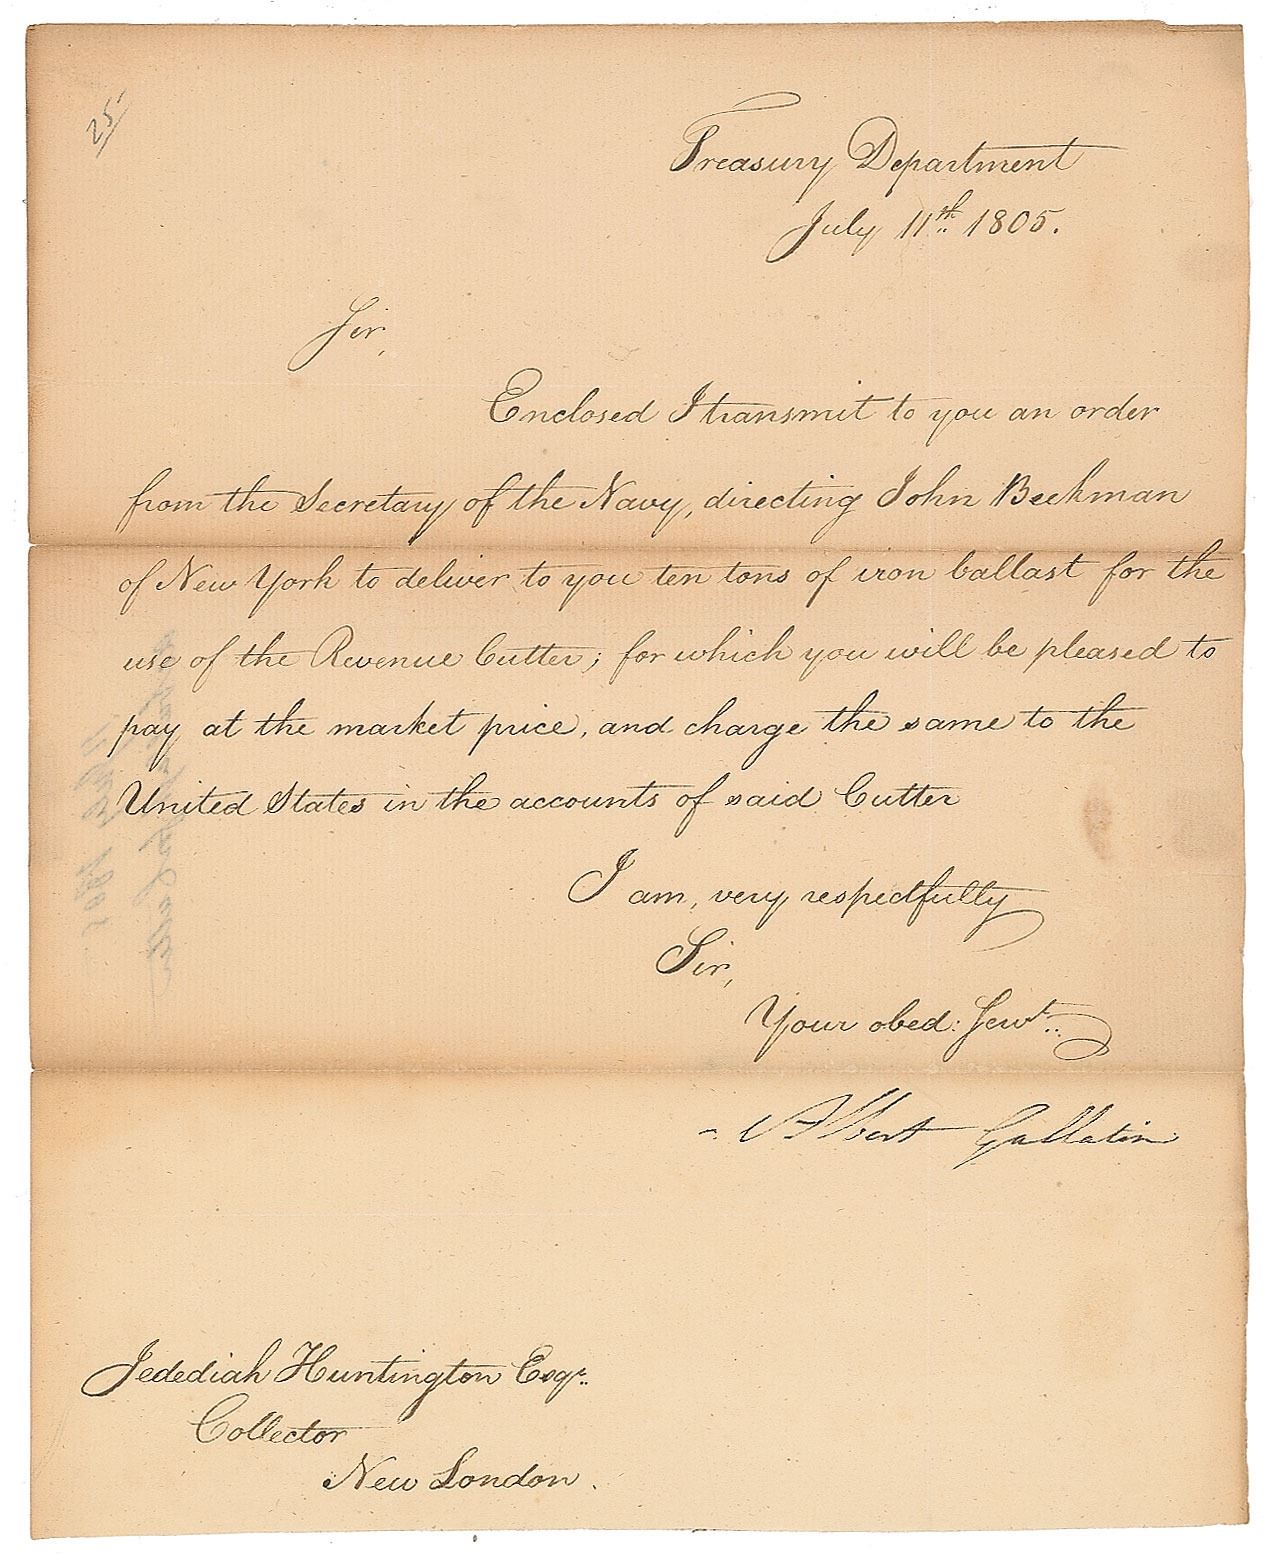 25
Treasury Department
July 11th. 1805.
Sir,
Enclosed I transmit to you an order
from the Secretary of the Navy, directing John Beekman
of New York to deliver to you ten tons of iron ballast for the
use of the Revenue Cutter; for which you will be pleased to
pay at the market price, and charge the same to the
United States in the accounts of said Cutter
I am, very respectfully
Sir,
Your obed: Servt.
Albert Gallatin
Jedediah Huntington Esqr.
Collector
New London.